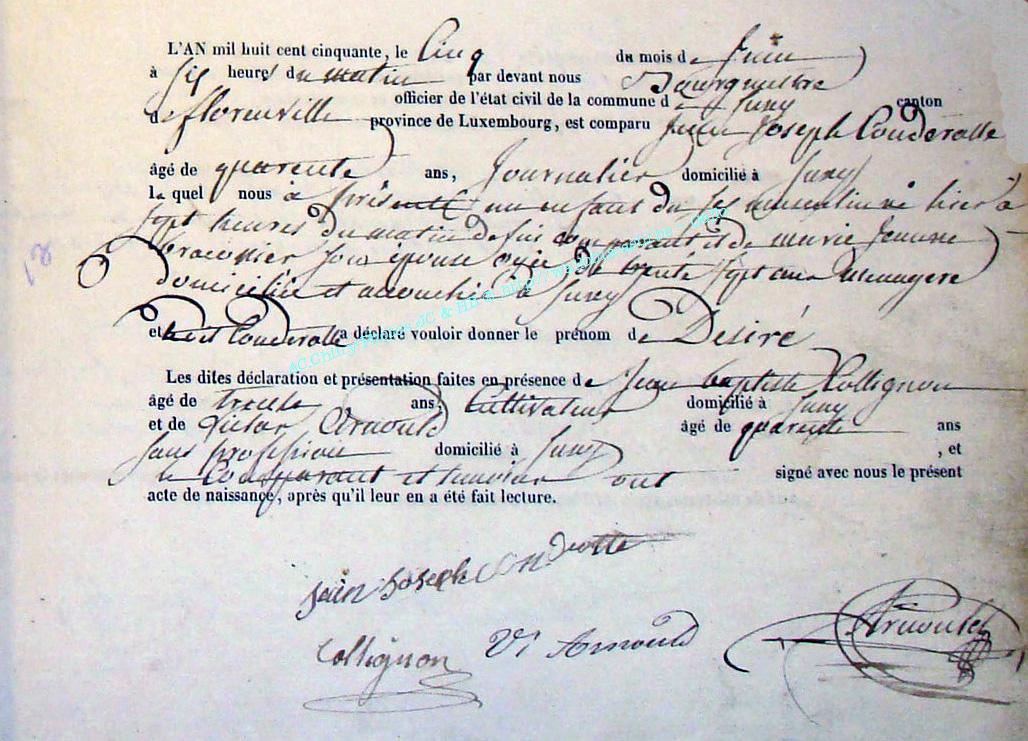 L'AN mil huit cent cinquante, le Cinq du mois de Juin
à Six heures du matin par devant nous Bourgmestre
officier de l'état civil de la commune de Suxy canton
de florenville province de Luxembourg, est comparu Jean Joseph Couderotte
âgé de quarente ans, Journalier domicilié à Suxy
le quel nous à présenté un enfant du sex masculin né hier à
sept heures du matin de lui comparant et de marie Jeanne
son épouse agée de trente sept ans menagere
domiciliée et accouchée à Suxy
et Couderotte a déclaré vouloir donner le prénom de Desiré
Les dites déclaration et présentation faites en présence de Jean baptiste Collignon
âgé de trente ans, Cultivateur domicilié à Suxy
et de Victor Arnould âgé de quarente ans
sans profession domicilié à Suxy, et
le Comparant et temoins ont signé avec nous le présent
acte de naissance, après qu'il leur en a été fait lecture.
18
Jean Joseph
Collignon
Vr Arnould
Arnould